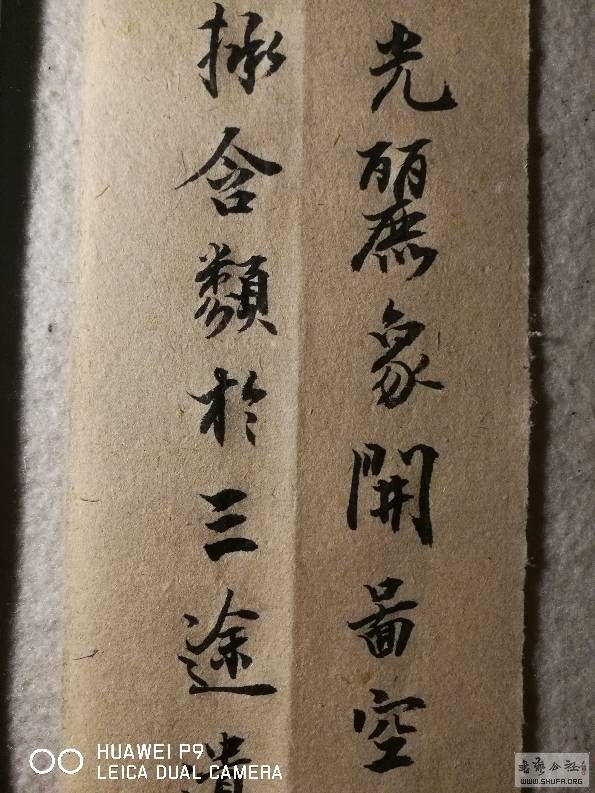 光麗象開啚空
拯含類於三途遺
HUAWEI P9
LEICA DUAL CAMERA
WWW.SHUFA.ORG